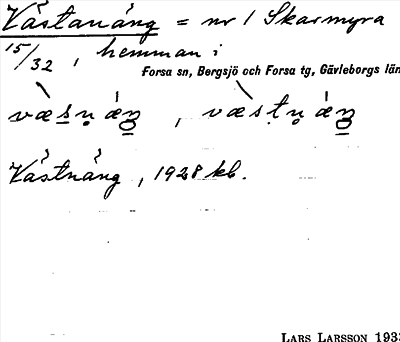 Västanäng = nr 1 Skarmyra
15/32, hemman i
Forsa sn, Bergsjö och Forsa tg, Gävleborgs län
Västnäng, 1928 kb.
LARS LARSSON 1933